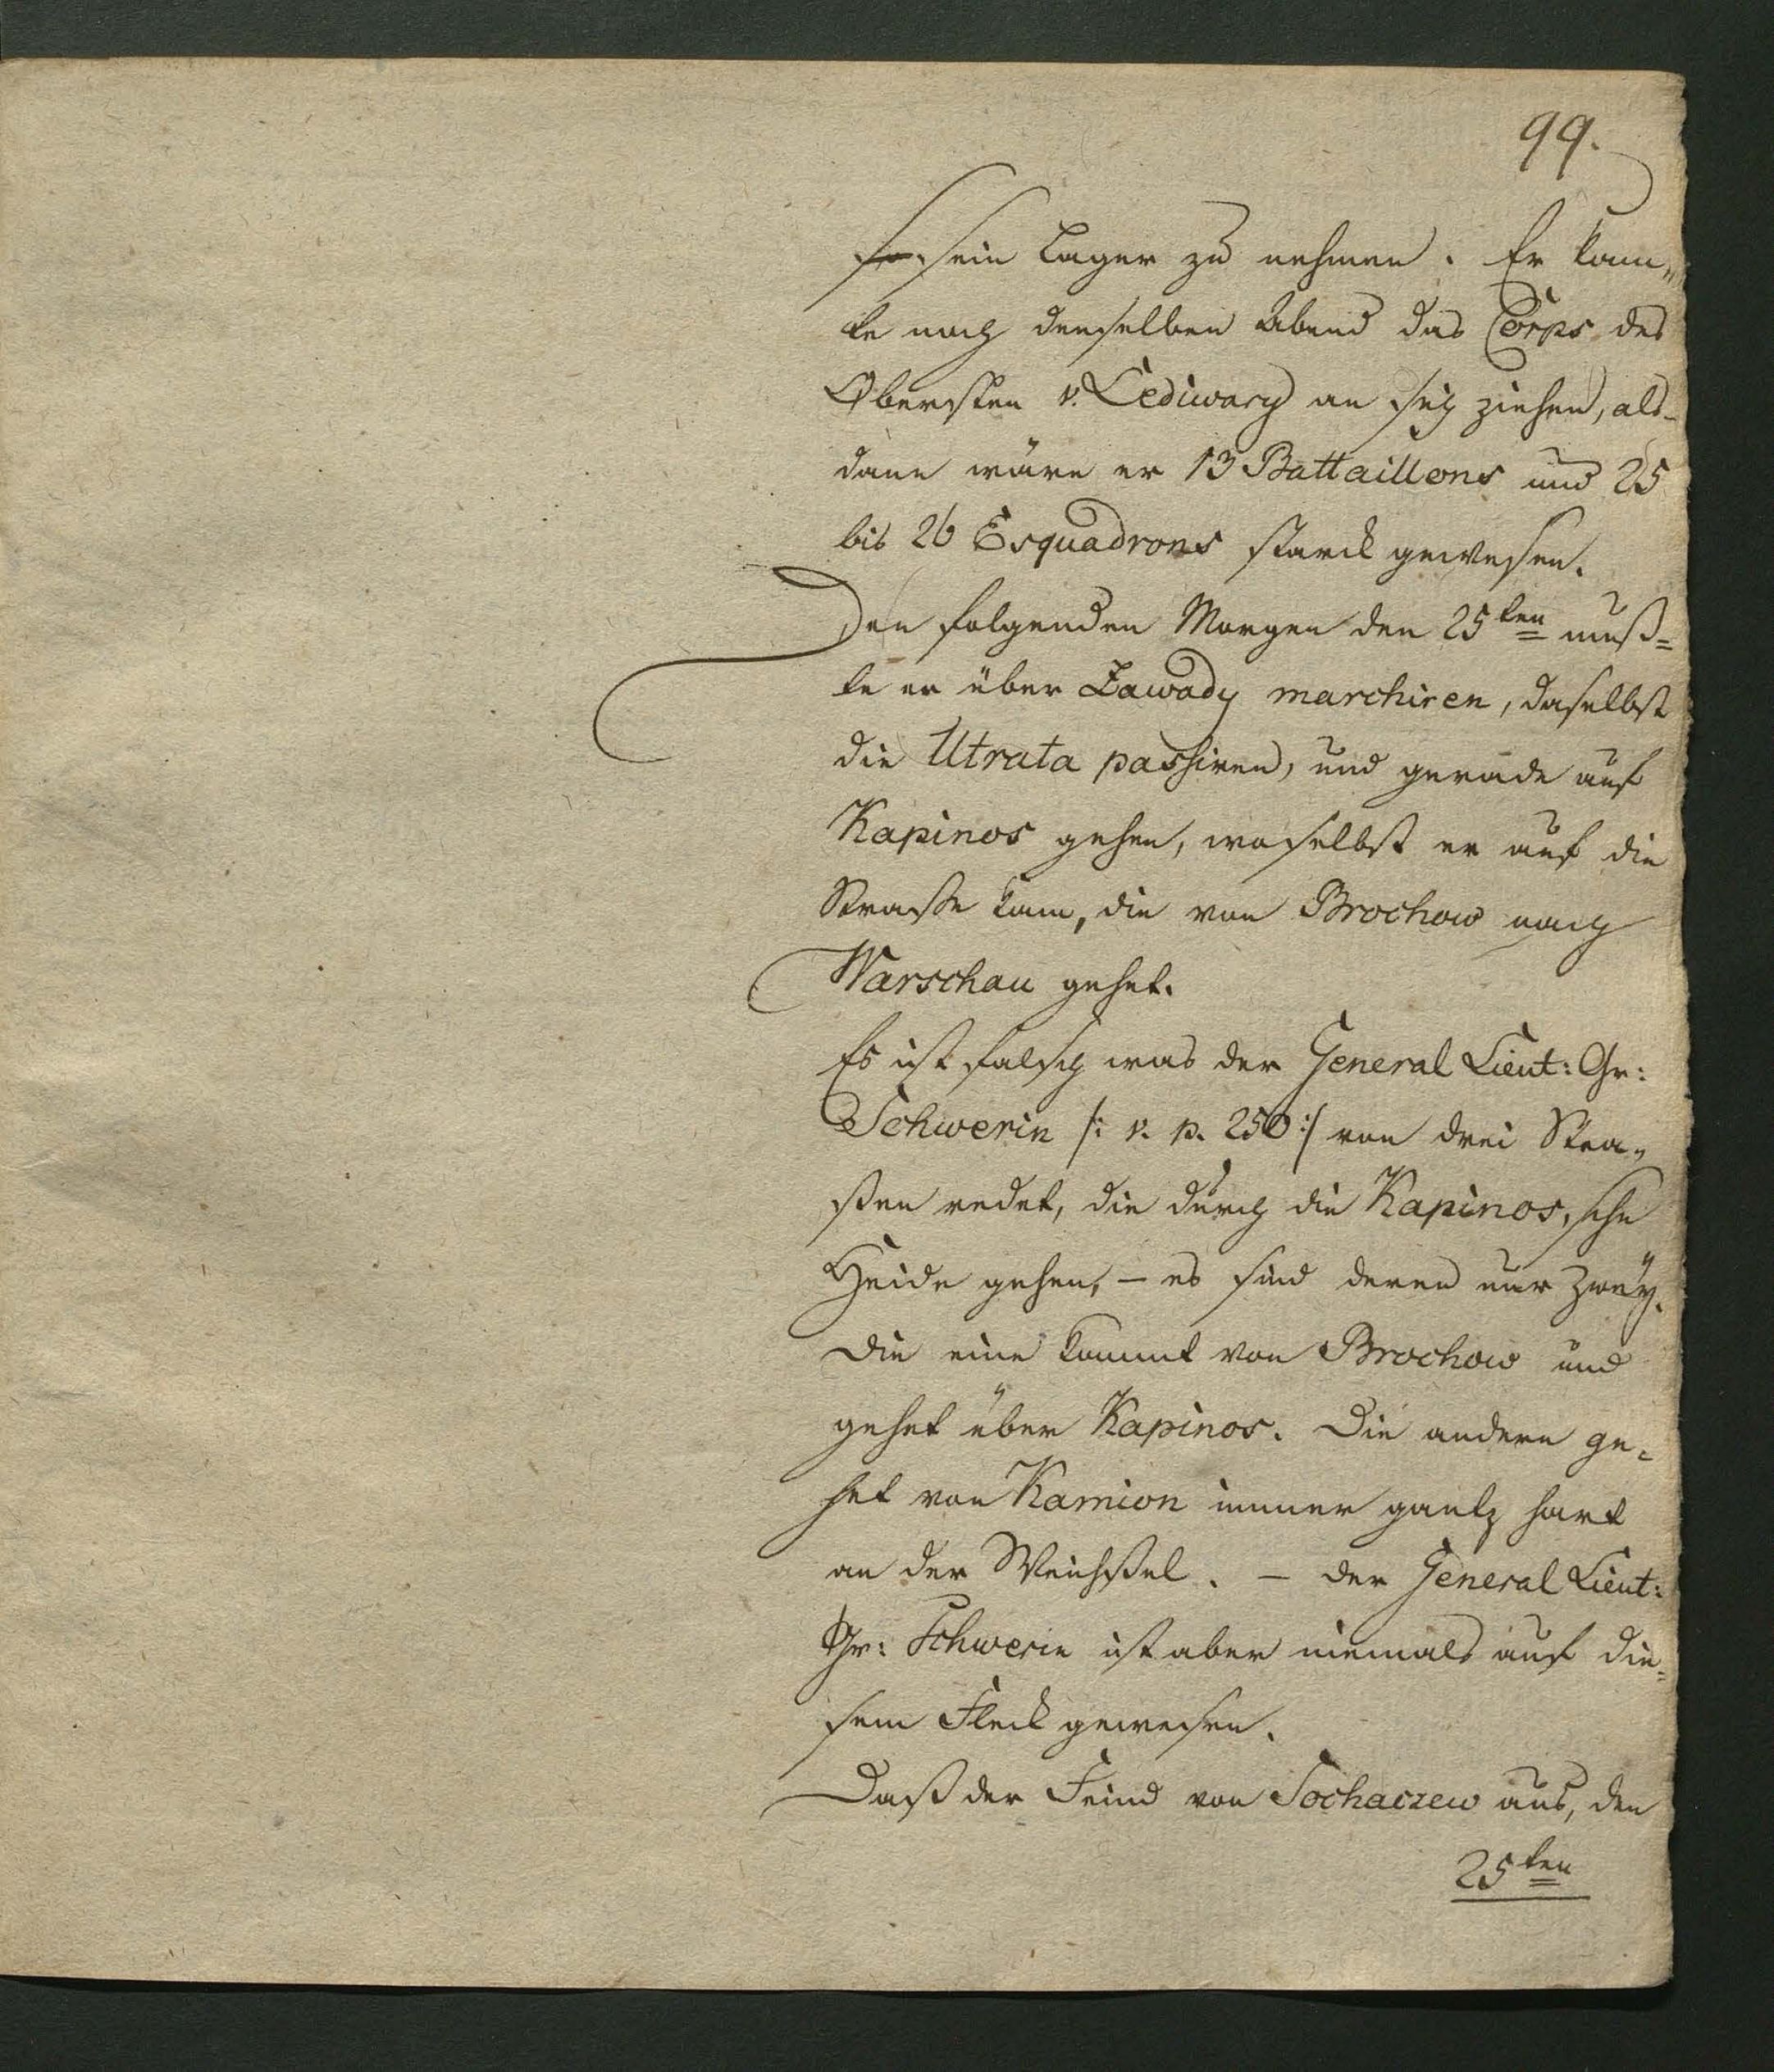 99.
sein Lager zu nehmen. Er konn„
te noch denselben Abend das Corps des
Obersten v. Lediwary an sich ziehen, als-
dann wäre er 13 Battaillons und 25
bis 26 Esquadrons starck gewesen.
Den folgenden Morgen den 25ten muß=
te er über Zawady marchiren, daselbst
die Utrata passiren, und gerade auf
Kapinos gehen, woselbst er auf die
Straße kam, die von Brochow nach
Warschau gehet.
Es ist falsch was der General Lieut: Gr:
Schwerin /: v. p. 250 :/ von drei Stra„
ßen redet, die durch die Kapinos„sche
Heide gehen, – es sind deren nur zwey.
Die eine kommt von Brochow und
gehet über Kapinos. Die andere ge=
het von Kamion immer gantz hart
an der Weichßel. – der General Lieut:
Gr: Schwerin ist aber niemals auf die=
sem Fleck gewesen.
Daß der Feind von Sochaczew aus, den
25ten